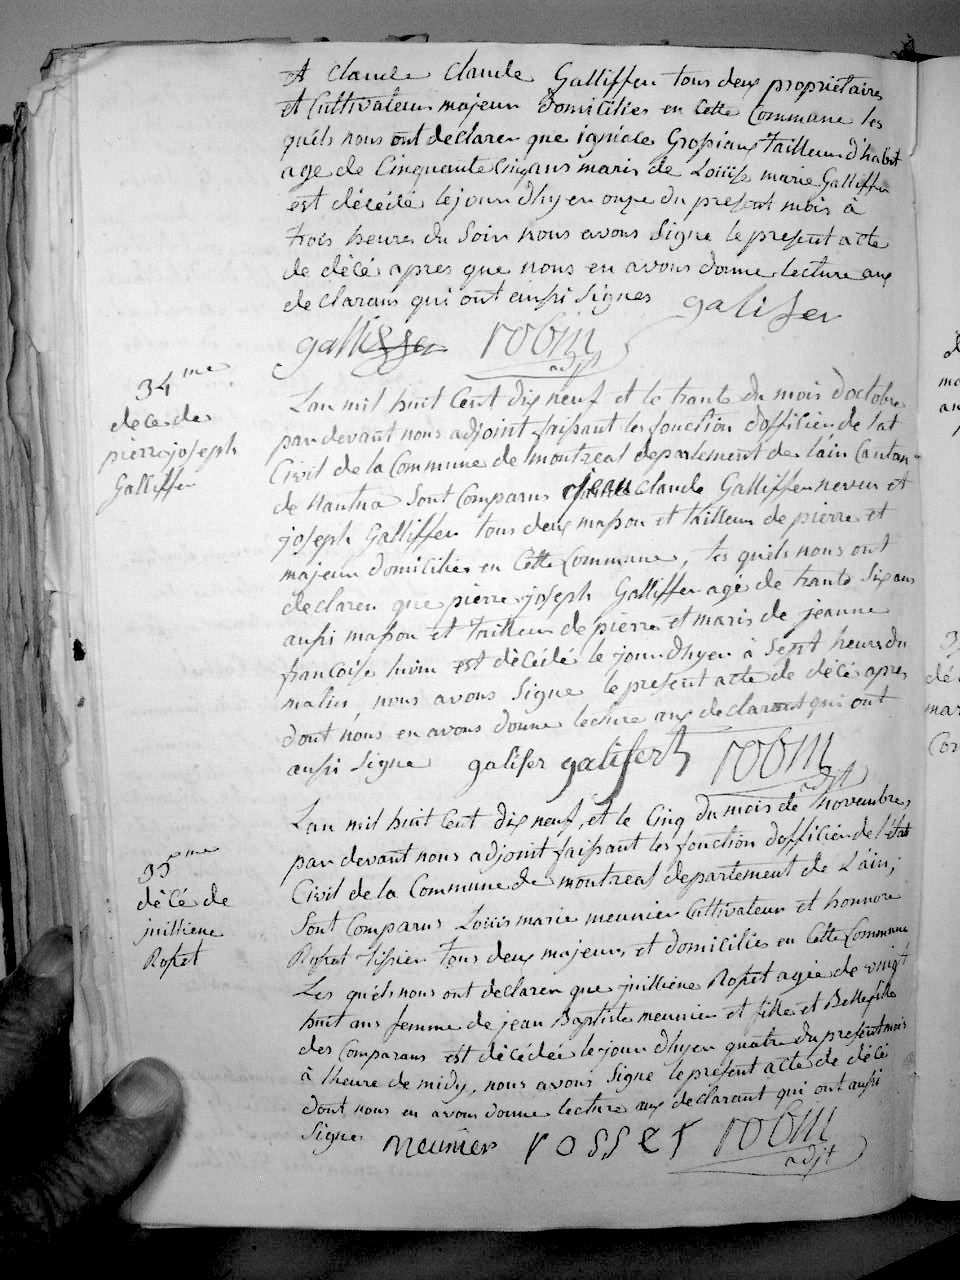 et claude claude Galliffer tous deux propriétaires
et Cultivateur majeur domiciliés en Cette Commune les
quels nous ont declaren que ignace Grospiaux tailleur d'habit
age de Cinquante Cinq ans maris de Louise marie Galliffer
est décédé le jour d'hyer onze du present mois à
trois heures du Soir nous avons Signe le present acte
de décé apres que nous en avons donne lecture aux
declarans qui ont aussi Signes galifer
galliffer robin
adjt
34me
dece de
pierre joseph
Galliffer
Lan mil huit Cent dix neuf et le trante du mois d'octobre
par devant nous adjoint faissant les fonction d'officier de l'at
Civil de la Commune de montreal departement de l'ain Canton
de Nantua Sont Comparus jean Claude Galliffer neveu et
joseph Galliffer tous deux masson et tailleur de pierre et
majeur domiciliés en Cette Commune, les quels nous ont
declaren que pierre joseph Galliffer age de trante Six ans
aussi masson et tailleur de pierre et maris de jeanne
francoise est décédé le jour d'hyer à Sept heures du
matin, nous avons Signe le present acte de décé apres
dont nous en avons donne lecture aux declarant qui ont
aussi Signe galifer galifert robin
adjt
35me
décé de
juilliene
Rosset
Lan mil huit Cent dix neuf, et le Cinq du mois de novembre,
par devant nous adjoint faissant les fonction d'officier de l'état
Civil de la Commune de montreal departement de L'ain,
Sont Comparus Louis marie meunier Cultivateur et honnore
Rosset tissier tous deux majeurs et domiciliés en Cette Commune
Les quels nous ont declaren que juilliene Rosset agée de vingt
huit ans femme de jean Baptiste meunier et fille et Bellefille
des Comparans est décédée le jour d'hyer quatre du present mois
à l'heure de midy, nous avons Signe le present acte de décé
dont nous en avons donne lecture aux declarant qui ont aussi
Signe meunier rosset robin
adjt